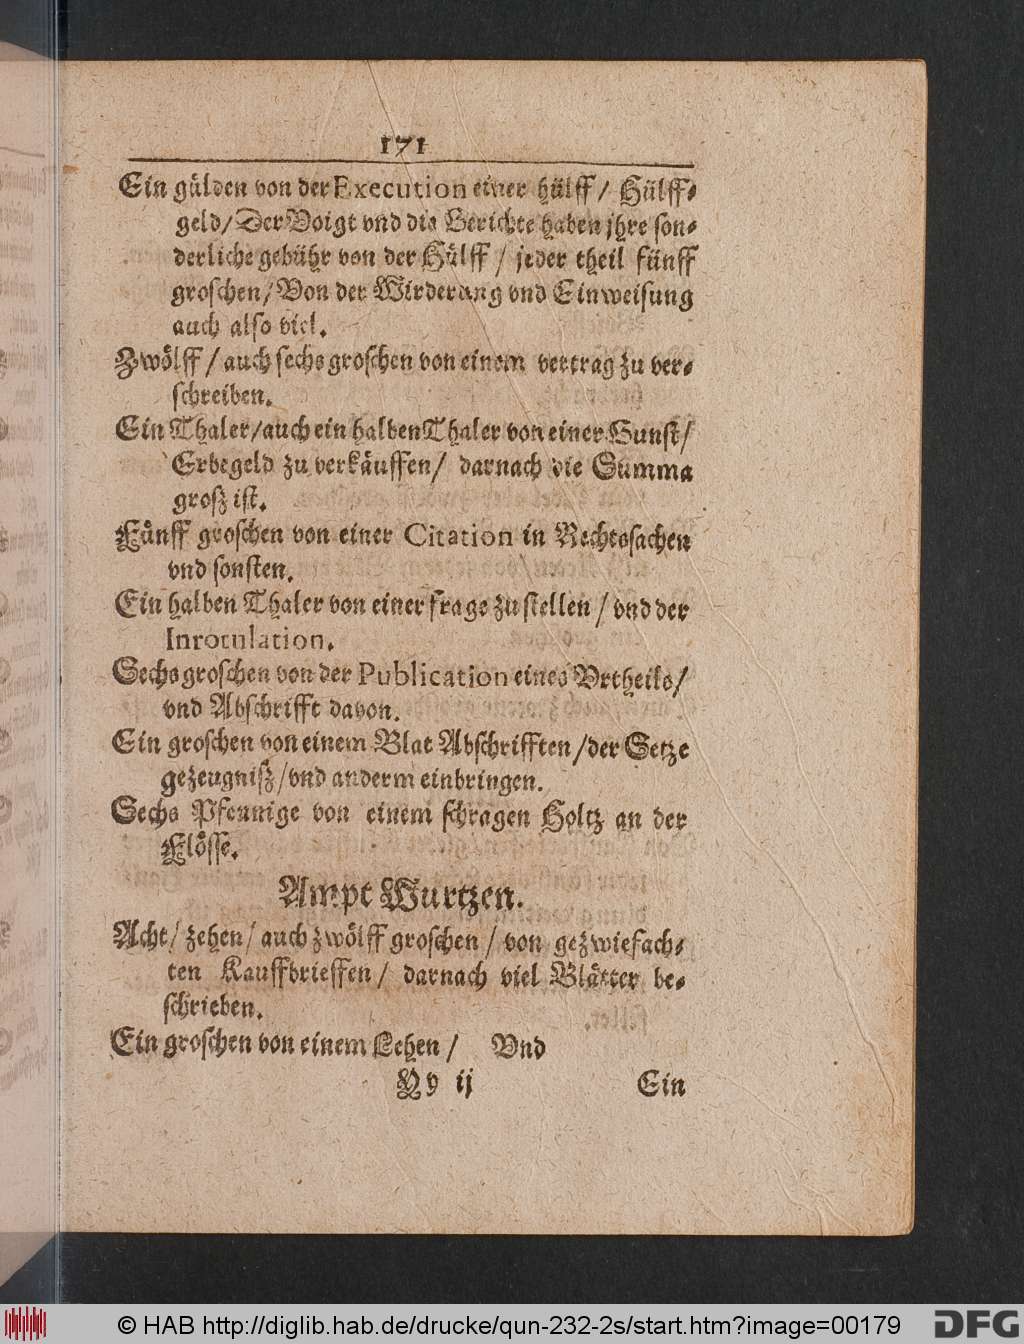 171
Ein gülden von der Execution einer hülff / Hülff⸗
geld / Der Voigt vnd die Gerichte haben jhre son⸗
derliche gebühr von der Hülff / jeder theil fünff
groschen / Von der Wirderung vnd Einweisung
auch also viel.
Zwölff / auch sechs groschen von einem vertrag zu ver⸗
schreiben.
Ein Thaler / auch ein halben Thaler von einer Gunst /
Erbegeld zu verkäuffen / darnach die Summa
groß ist.
Fünff groschen von einer Citation in Rechtssachen
vnd sonsten.
Ein halben Thaler von einer frage zu stellen / vnd der
Inrotulation.
Sechs groschen von der Publication eines Vrtheils /
vnd Abschrifft davon.
Ein groschen von einem Blat Abschrifften / der Setze
gezeugniß / vnd anderm einbringen.
Sechs Pfennige von einem schragen Holtz an der
Flösse.
Ampt Wurtzen.
Acht / zehen / auch zwölff groschen / von gezwiefach⸗
ten Kauffbrieffen / darnach viel Blätter be⸗
schrieben.
Ein groschen von einem Lehen / Vnd
Yy ij Ein
© HAB http://diglib.hab.de/drucke/qun-232-2s/start.htm?image=00179
DFG